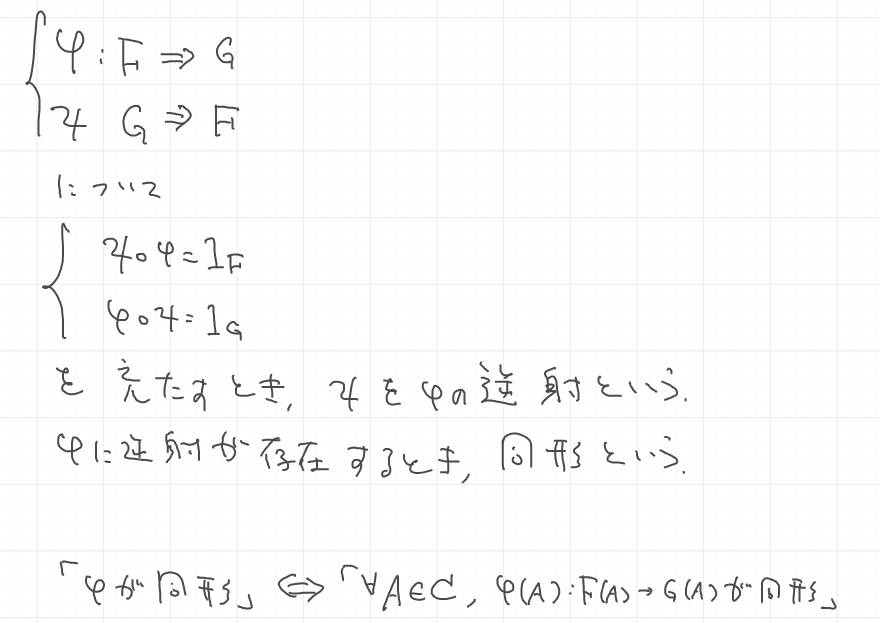 φ : F ⇒ G
ψ G ⇒ F
について
ψ∘φ = 1_F
φ∘ψ = 1_G
を充たすとき, ψをφの逆射という.
φに逆射が存在するとき, 同形という.
「φが同形」 ⇔ 「∀A∈C, φ(A) : F(A) → G(A) が同形」